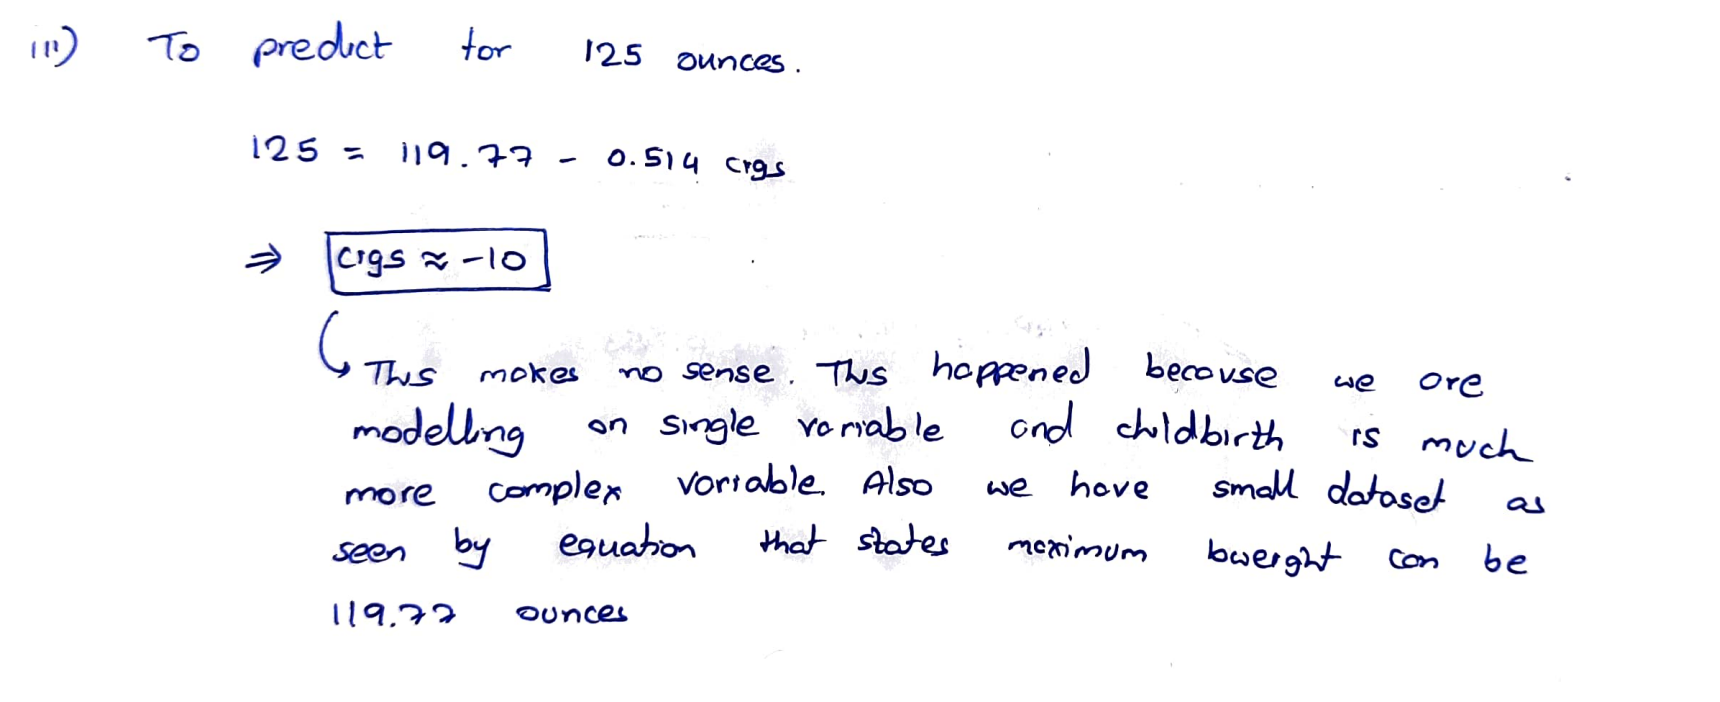 iii) To predict for 125 ounces.
125 = 119.77 - 0.514 cigs
⇒ cigs ≈ -10
This makes no sense. This happened because we are
modelling on single variable and childbirth is much
more complex variable. Also we have small dataset as
seen by equation that states maximum bweight can be
119.77 ounces